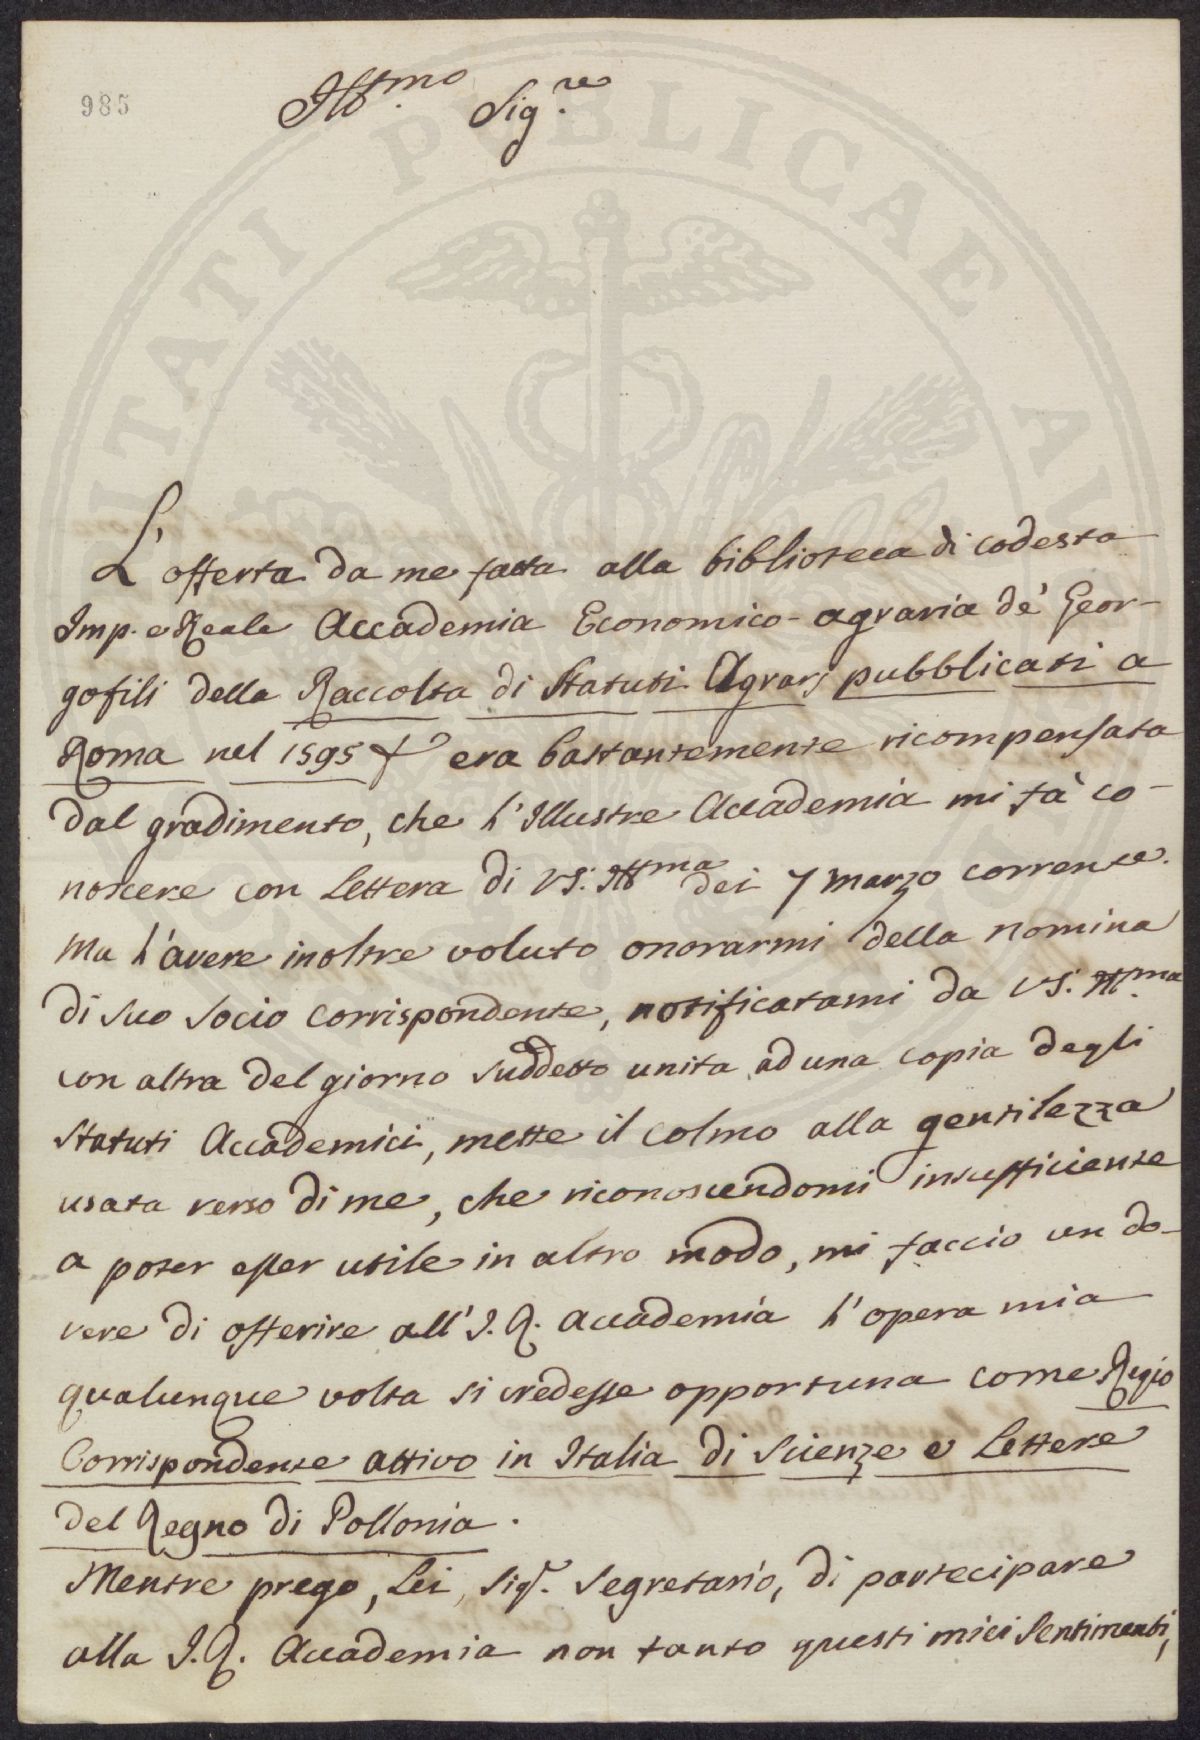 985
Ill.mo Sig.re
L'offerta da me fatta alla biblioteca di codesta
Imp. e Reale Accademia Economico-agraria de' Geor-
gofili della Raccolta di Statuti Agrarj pubblicati a
Roma nel 1595 era bastantemente ricompensata
dal gradimento, che l'Illustre Accademia mi fà co-
noscere con Lettera di VS. Ill.ma dei 7 marzo corrente.
Ma l'avere inoltre voluto onorarmi della nomina
di suo socio corrispondente, notificatami da VS. Ill.ma
con altra del giorno suddetto unita ad una copia degli
Statuti Accademici, mette il colmo alla gentilezza
usata verso di me, che riconoscendomi insufficiente
a poter esser utile in altro modo, mi faccio un do-
vere di offerire all'I. R. Accademia l'opera mia
qualunque volta si credesse opportuna come Regio
Corrispondente attivo in Italia di Scienze e Lettere
del Regno di Pollonia.
Mentre prego, Lei, Sig.r Segretario, di partecipare
alla I. R. Accademia non tanto questi miei Sentimenti,
PROSPERITATI PUBLICAE AU